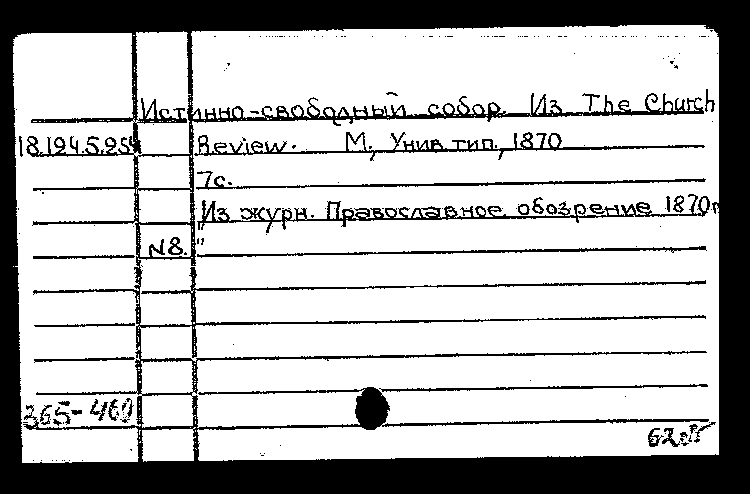 Истинно-свободный собор. Из The Church
18.194.5.95 Review. М., Унив. тип., 1870
7с.
"Из журн. Православное обозрение 1870г
N8. "
365-460